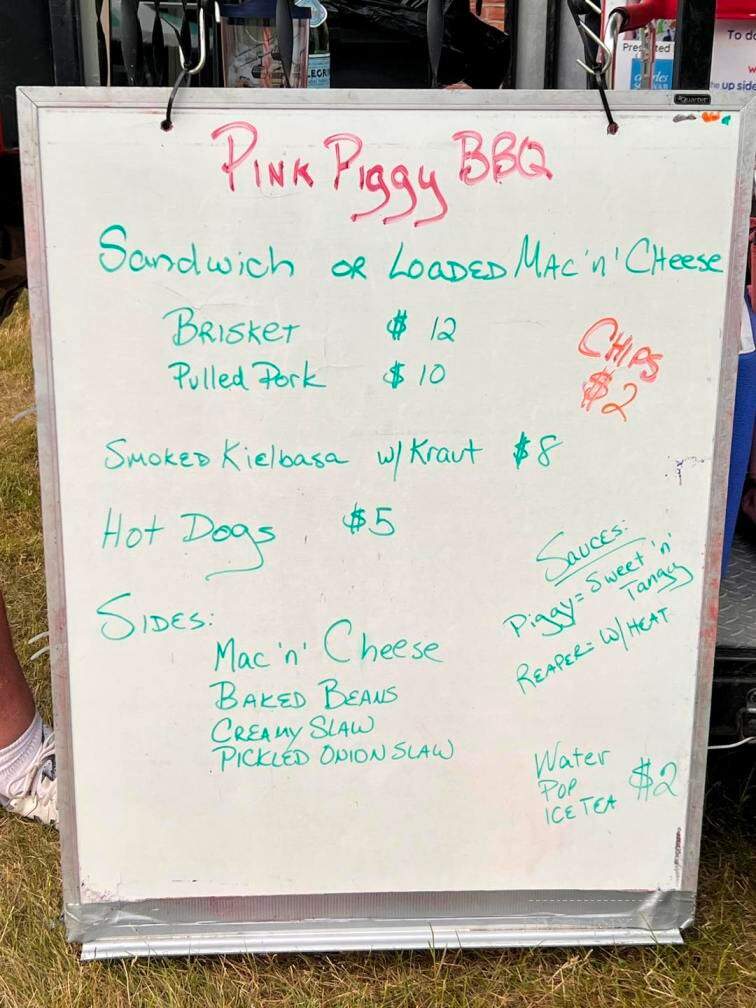 PINK PIGGY BBQ
Sandwich OR LOADED MAC 'n' CHeese
BRISKET $ 12
Pulled Pork $ 10
CHIPS
$2
SMOKED Kielbasa w/ Kraut $8
Hot Dogs $5
SAUCES:
Piggy = Sweet 'n'
Tangy
REAPER = W/ HEAT
SIDES:
Mac 'n' Cheese
BAKED BEANS
CREAMY SLAW
PICKLED ONION SLAW
Water
POP $2
ICE TEA
Quartet
To do
up side